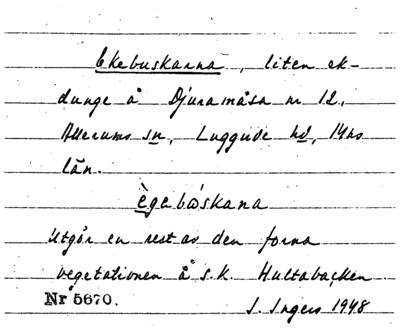 Ekebuskarna, liten ek-
dunge å Djuramåsa nr 12,
Allerums sn, Luggude hd, Mlhs
län.
ègabåskana
Utgör en rest av den forna
vegetationen å s.k. Hultabacken
Nr 5670.
I. Ingers 1948